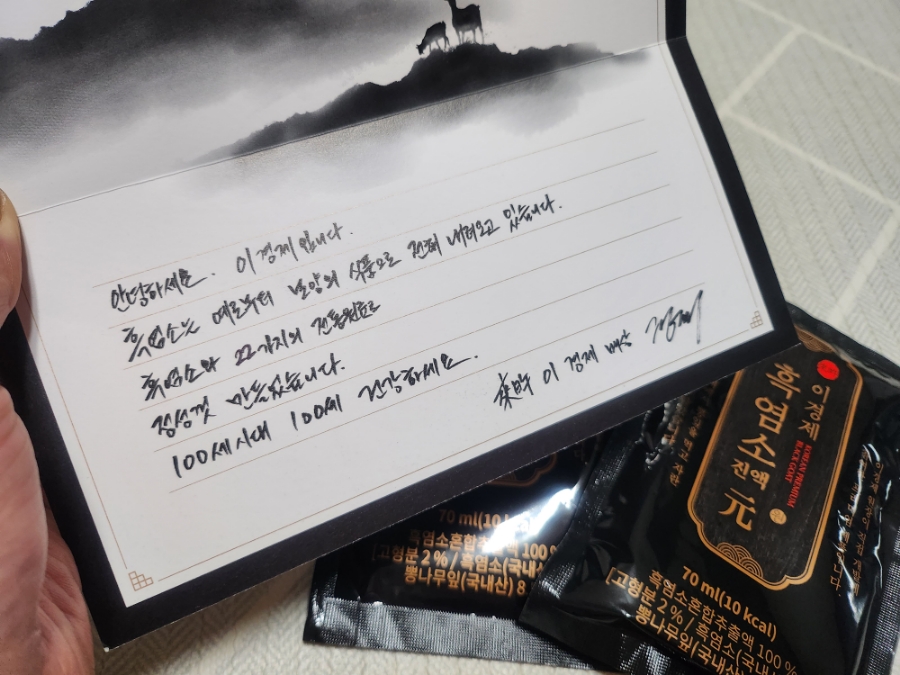 안녕하세요. 이경제입니다.
흑염소는 예로부터 보양의 식품으로 전해 내려오고 있습니다.
흑염소와 22가지의 전통원료로
정성껏 만들었습니다.
100세시대 100세 건강하세요.
이경제 배상
이경제
흑염소
진액
元
KOREAN PREMIUM
BLACK GOAT
70 ml(10 kcal)
흑염소혼합추출액 100 %
[고형분 2 % / 흑염소(국내
뽕나무잎(국내산)
70 ml(10 kc
흑염소혼합추출액 100
[고형분 2 % / 흑염소(국내산
뽕나무잎(국내산) 8